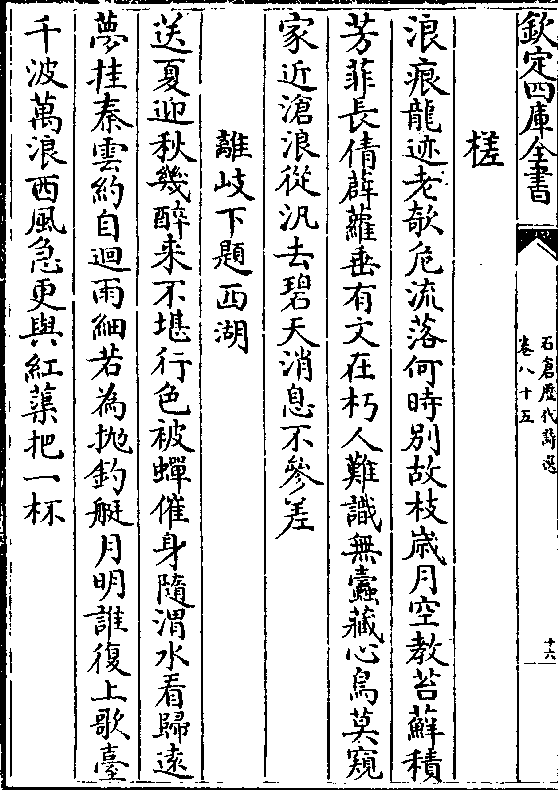 欽定四庫全書
石倉歷代詩選
卷八十五
十六
槎
浪痕龍迹老欹危流落何時別故枝歲月空教苔蘚積
芳菲長倩薜蘿垂有文在朽人難識無蠧藏心鳥莫窺
家近滄浪從汎去碧天消息不參差
離岐下題西湖
送夏迎秋幾醉来不堪行色被蟬催身隨渭水看歸遠
夢挂秦雲約自迴雨細若為抛釣艇月明誰復上歌臺
千波萬浪西風急更與紅蕖把一杯